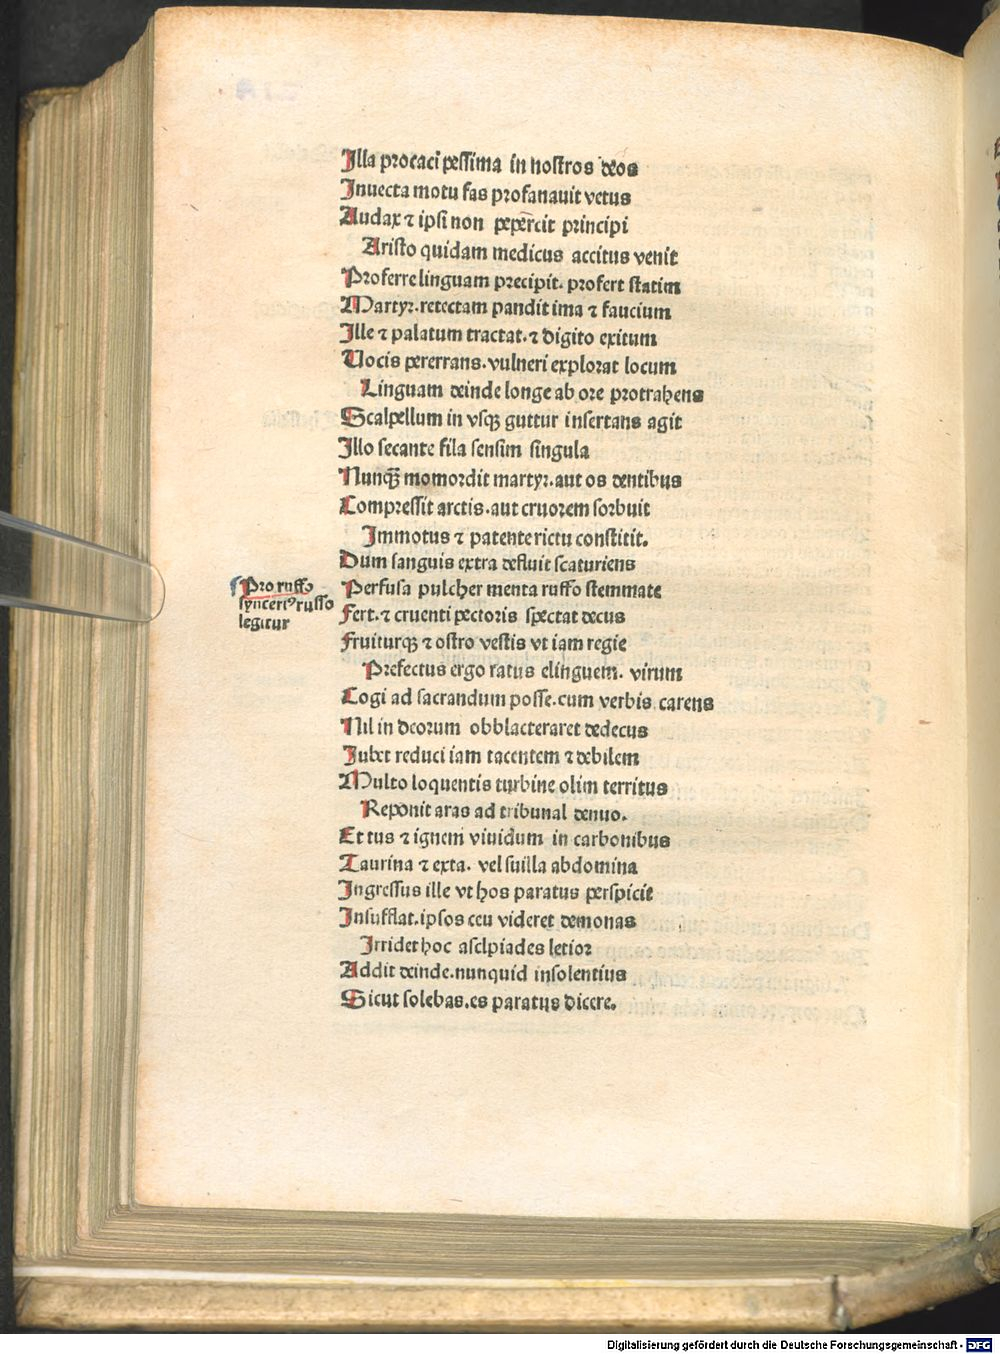 Illa procaci pessima in nostros deos
Inuecta motu fas profanauit vetus
Audax ⁊ ipsi non peper̄cit principi
Aristo quidam medicus accitus venit
Proferre linguam precipit. profert statim
Martyꝛ. retectam pandit ima ⁊ faucium
Ille ⁊ palatum tractat. ⁊ digito exitum
Uocis pererrans. vulneri exploꝛat locum
Linguam deinde longe ab ore protrahens
Scalpellum in vsqꝫ guttur insertans agit
Illo secante fila sensim singula
Nunqꝫ̄ momordit martyꝛ. aut os dentibus
Compressit arctis. aut cruoꝛem soꝛbuit
Immotus ⁊ patente rictu constitit.
Dum sanguis extra defluit scaturiens
Perfusa pulcher menta ruffo stemmate
Pro ruffo
synceriꝰ russo
legitur
Fert. ⁊ cruenti pectoꝛis spectat decus
Fruiturqꝫ ⁊ ostro vestis vt iam regie
Prefectus ergo ratus elinguem. virum
Cogi ad sacrandum posse. cum verbis carens
Nil in deoꝛum obblacteraret dedecus
Iubet reduci iam tacentem ⁊ debilem
Multo loquentis turbine olim territus
Reponit aras ad tribunal denuo.
Et tus ⁊ ignem viuidum in carbonibus
Taurina ⁊ exta. vel suilla abdomina
Ingressus ille vt hos paratus perspicit
Insufflat. ipsos ceu videret demonas
Irridet hoc asclpiades letioꝛ
Addit deinde. nunquid insolentius
Sicut solebas. es paratus dicere.
Digitalisierung gefördert durch die Deutsche Forschungsgemeinschaft - DFG